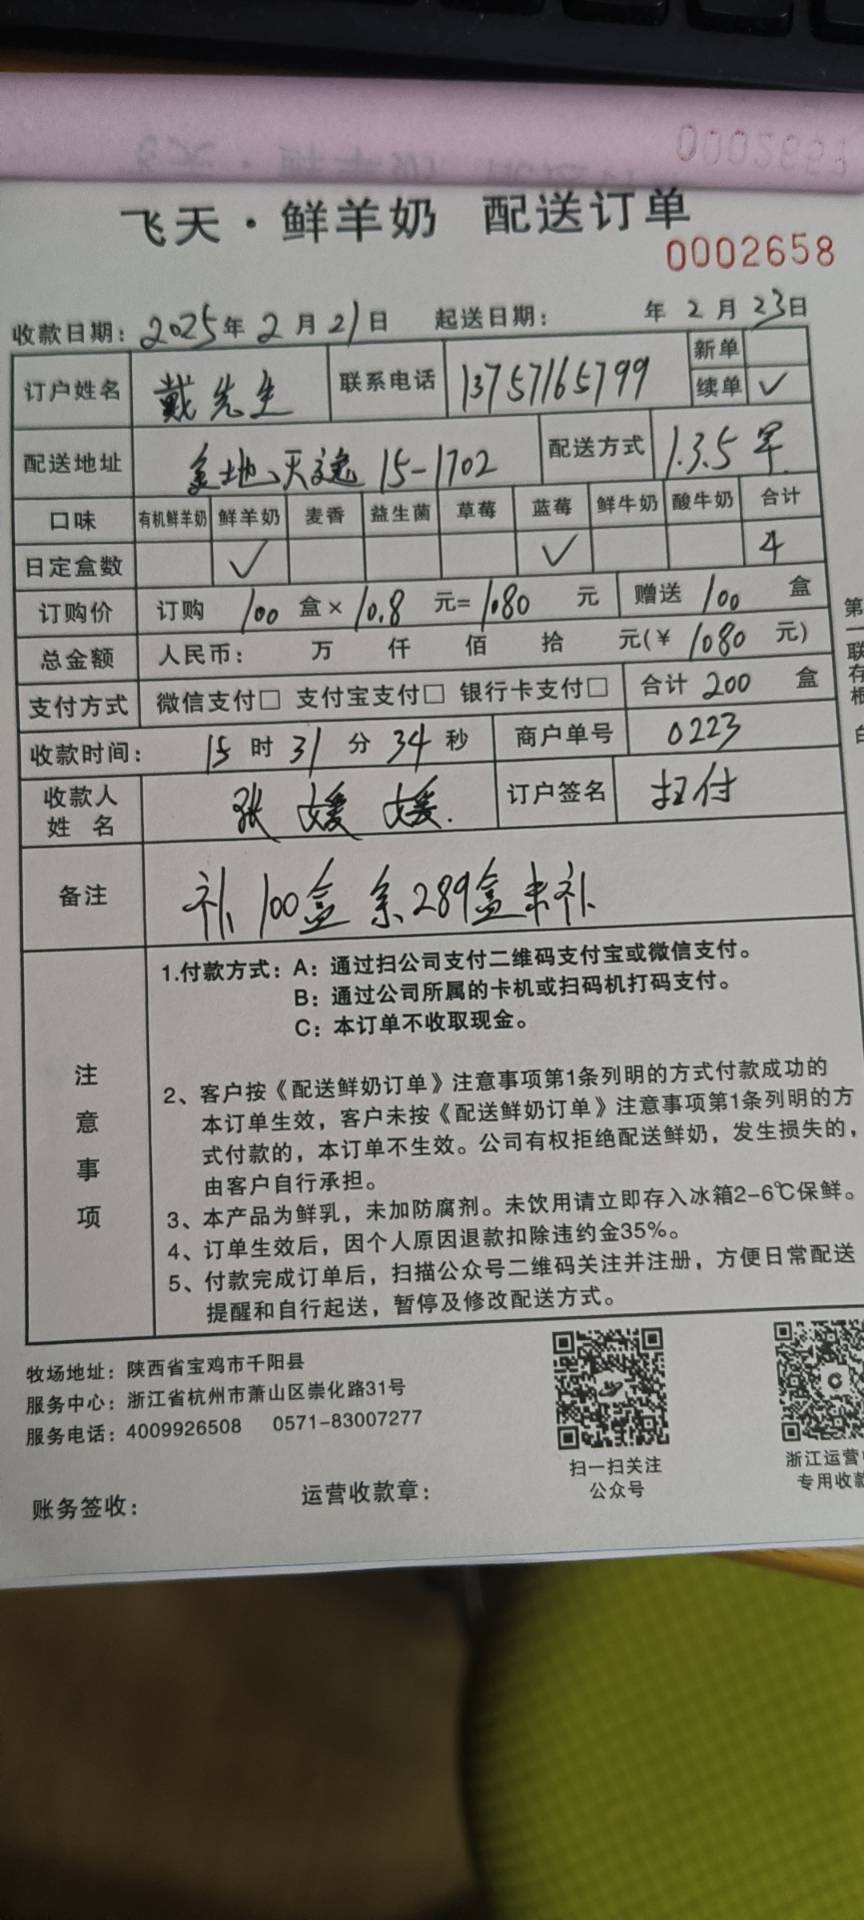 飞天·鲜羊奶 配送订单
0002658
收款日期：2025年2月21日 起送日期： 年2月23日
订户姓名 戴先生 联系电话 13757165799 新单
续单 ✓
配送地址 金地天逸 15-1702 配送方式 1.3.5 早
口味 有机鲜羊奶 鲜羊奶 麦香 益生菌 草莓 蓝莓 鲜牛奶 酸牛奶 合计
日定盒数 ✓ ✓ 4
订购价 订购 100 盒× 10.8 元= 1080 元 赠送 100 盒
总金额 人民币： 万 仟 佰 拾 元(¥ 1080 元)
支付方式 微信支付□ 支付宝支付□ 银行卡支付□ 合计 200 盒
收款时间： 15 时 31 分 34 秒 商户单号 0223
收款人
姓 名 张媛媛. 订户签名 扫付
备注 补100盒 余289盒未补
注意事项
1.付款方式：A：通过扫公司支付二维码支付宝或微信支付。
B：通过公司所属的卡机或扫码机打码支付。
C：本订单不收取现金。
2、客户按《配送鲜奶订单》注意事项第1条列明的方式付款成功的
本订单生效，客户未按《配送鲜奶订单》注意事项第1条列明的方
式付款的，本订单不生效。公司有权拒绝配送鲜奶，发生损失的，
由客户自行承担。
3、本产品为鲜乳，未加防腐剂。未饮用请立即存入冰箱2-6℃保鲜。
4、订单生效后，因个人原因退款扣除违约金35%。
5、付款完成订单后，扫描公众号二维码关注并注册，方便日常配送
提醒和自行起送，暂停及修改配送方式。
第一联存根
牧场地址：陕西省宝鸡市千阳县
服务中心：浙江省杭州市萧山区崇化路31号
服务电话：4009926508 0571-83007277
扫一扫关注
公众号
浙江运营
专用收款
账务签收： 运营收款章：